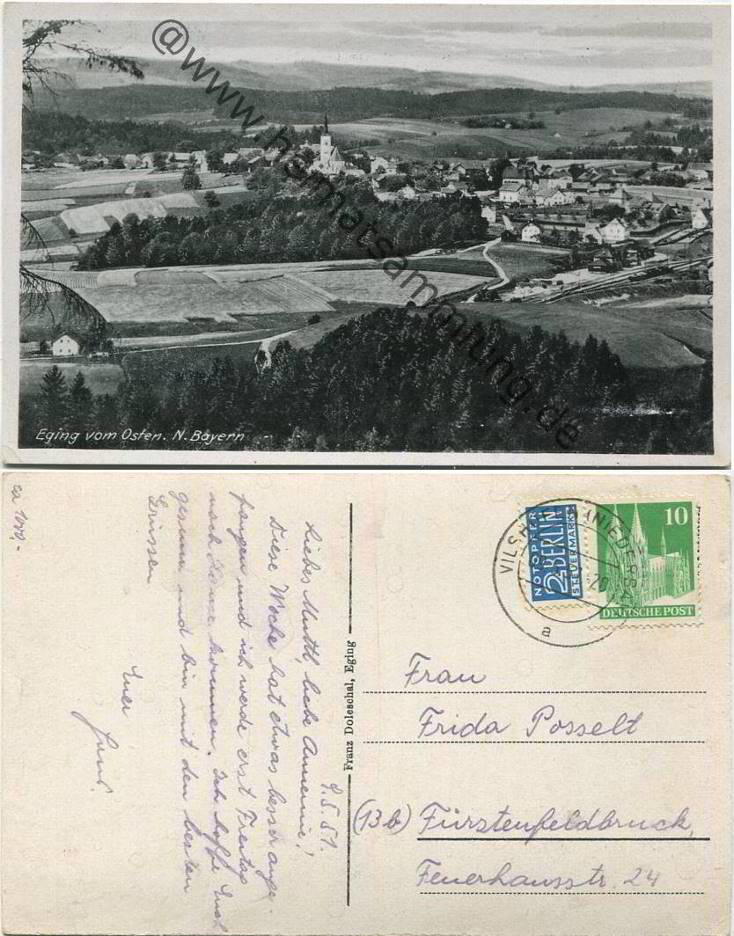 @www.heimatsammlung.de
Eging vom Osten. N. Bayern
ca 1000,-
9.5.51.
Liebes Muttl, liebe Annemie!
Diese Woche hat etwas besser ange-
fangen und ich werde erst Freitag
nach Hause kommen. Ich hoffe Euch
gesund und bin mit den besten
Grüssen
Euer
Franz Doleschal, Eging
NOTOPFER
2 BERLIN
STEUERMARKE
10
DEUTSCHE POST
VILSH
a
Frau
Frida Posselt
(13b) Fürstenfeldbruck,
Feuerhausstr. 24